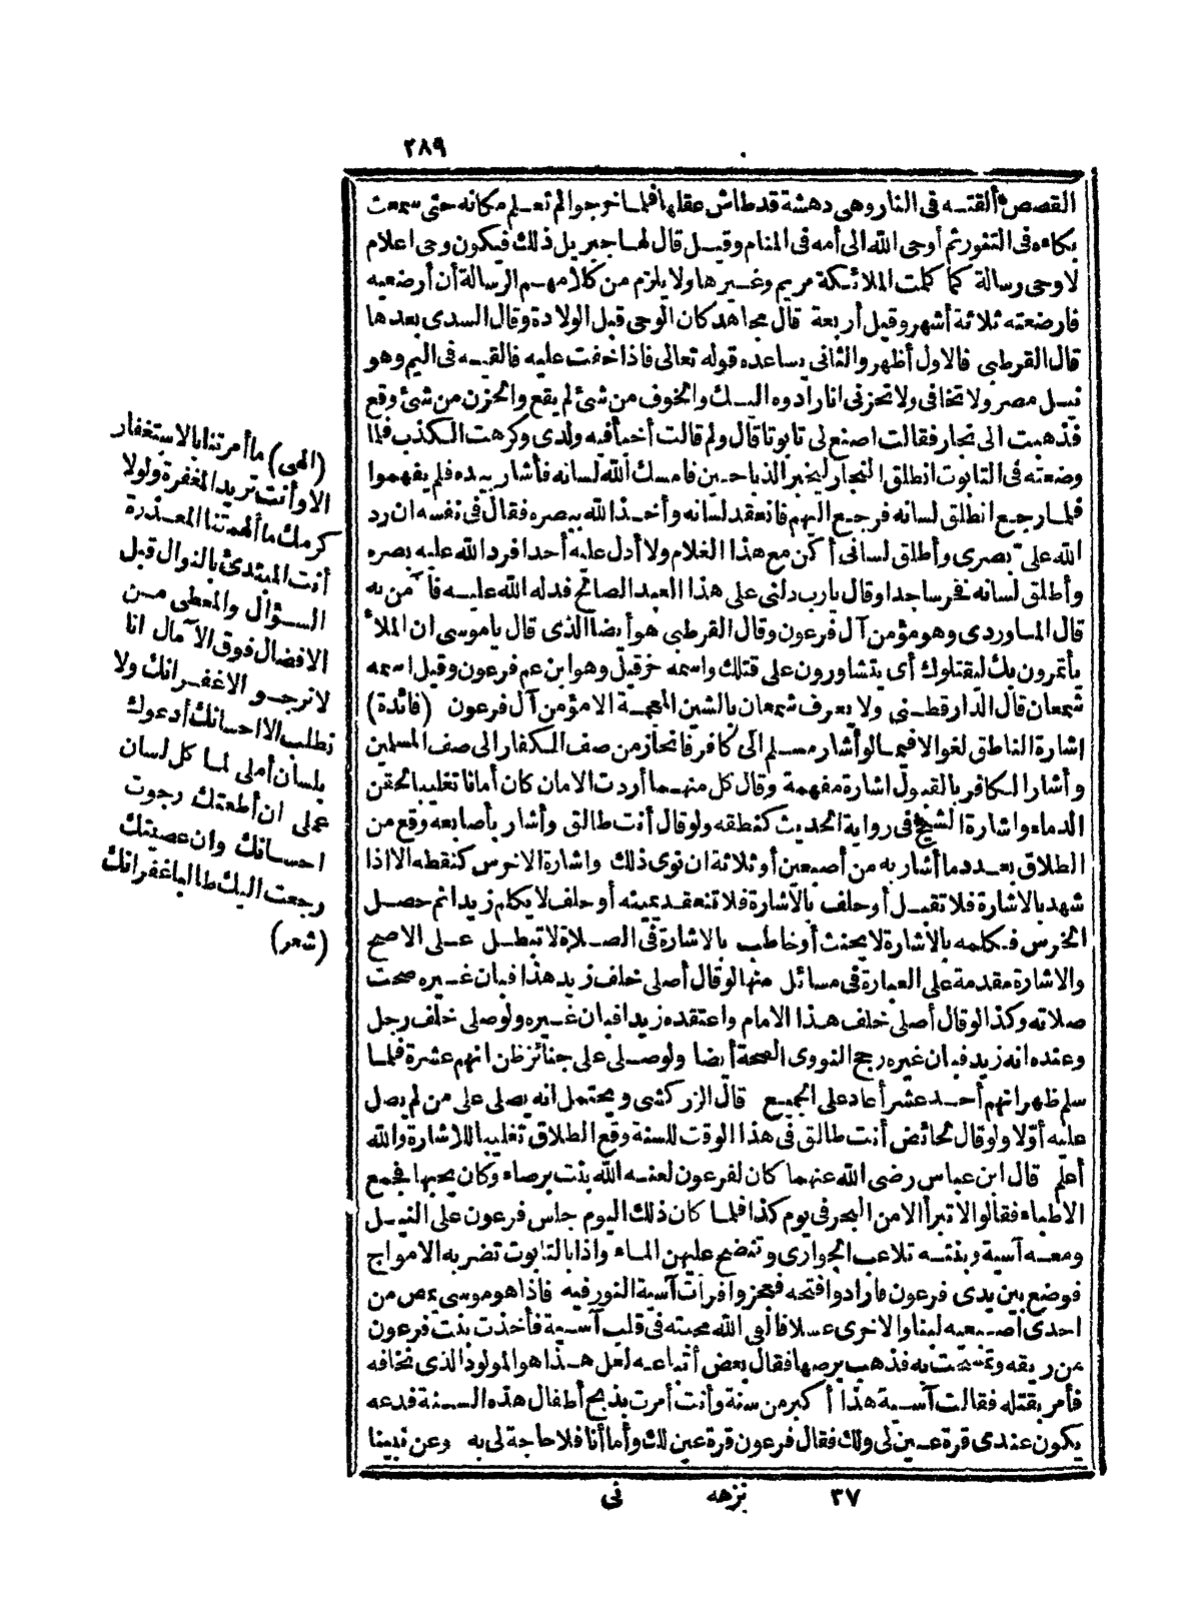 ٢٨٩
القصص ألقته في النار وهي دهشة قد طاش عقلها فلما خرجوا لم تعلم مكانه حتى سمعت
بكاءه في التنور ثم أوحى الله الى أمه في المنام وقيل قال لها جبريل ذلك فيكون وحى اعلام
لا وحى رسالة كما كلمت الملائكة مريم وغيرها ولا يلزم من كلامهم الرسالة أن أرضعيه
فارضعته ثلاثة أشهر وقيل أربعة قال مجاهد كان الوحى قبل الولادة وقال السدى بعدها
قال القرطبي فالاول أظهر والثانى يساعده قوله تعالى فاذا خفت عليه فالقيه في اليم وهو
نيل مصر ولا تخافى ولا تحزنى انا رادوه اليك والخوف من شئ لم يقع والحزن من شئ وقع
فذهبت الى نجار فقالت اصنع لى تابوتا قال ولم قالت أخبأ فيه ولدى وكرهت الكذب فلما
وضعته في التابوت انطلق النجار ليخبر الذباحين فامسك الله لسانه فأشار بيده فلم يفهموا
فلما رجع انطلق لسانه فرجع اليهم فانعقد لسانه وأخذ الله ببصره فقال في نفسه ان رد
الله علىّ بصرى وأطلق لسانى أكن مع هذا الغلام ولا أدل عليه أحدا فرد الله عليه بصره
وأطلق لسانه فخر ساجدا وقال يارب دلنى على هذا العبد الصالح فدله الله عليه فآمن به
قال الماوردى وهو مؤمن آل فرعون وقال القرطبي هو أيضا الذى قال ياموسى ان الملأ
يأتمرون بك ليقتلوك أى يتشاورون على قتلك واسمه حزقيل وهو ابن عم فرعون وقيل اسمه
شمعان قال الدارقطنى ولا يعرف شمعان بالشين المعجمة الا مؤمن آل فرعون (فائدة)
اشارة الناطق لغو الا فيما لو أشار مسلم الى كافر فانحاز من صف الكفار الى صف المسلمين
وأشار الكافر بالقبول اشارة مفهمة وقال كل منهما أردت الامان كان أمانا تغليبا لحقن
الدماء واشارة الشيخ في رواية الحديث كنطقه ولو قال أنت طالق وأشار بأصابعه وقع من
الطلاق بعدد ما أشار به من أصبعين أو ثلاثة ان نوى ذلك واشارة الاخرس كنطقه الا اذا
شهد بالاشارة فلا تقبل أو حلف بالاشارة فلا تنعقد يمينه أو حلف لا يكلم زيدا ثم حصل
الخرس فكلمه بالاشارة لا يحنث أو خاطب بالاشارة في الصلاة لا تبطل على الاصح
والاشارة مقدمة على العبارة في مسائل منها لو قال أصلى خلف زيد هذا فبان غيره صحت
صلاته وكذا لو قال أصلى خلف هذا الامام واعتقده زيدا فبان غيره ولو صلى خلف رجل
وعنده انه زيد فبان غيره رجح النووى الصحة أيضا ولو صلى على جنائز ظن انهم عشرة فلما
سلم ظهر انهم أحد عشر أعاد على الجميع قال الزركشى ويحتمل انه يصلى على من لم يصل
عليه أوّلا ولو قال لحائض أنت طالق في هذا الوقت للسنة وقع الطلاق تغليبا للاشارة والله
أعلم قال ابن عباس رضى الله عنهما كان لفرعون لعنه الله بنت برصاء وكان يحبها فجمع
الاطباء فقالوا لا تبرأ الا من البحر في يوم كذا فلما كان ذلك اليوم جلس فرعون على النيل
ومعه آسية وبنته تلاعب الجوارى وتنضح عليهن الماء واذا بالتابوت تضربه الامواج
فوضع بين يدى فرعون فارادوا فتحه فعجزوا فرأت آسية النور فيه فاذا هو موسى يمص من
احدى أصبعيه لبنا والاخرى عسلا فألقى الله محبته في قلب آسية فأخذت بنت فرعون
من ريقه وتمسحت به فذهب برصها فقال بعض أتباعه لعل هذا هو المولود الذى نخافه
فأمر بقتله فقالت آسية هذا أكبر من سنة وأنت أمرت بذبح أطفال هذه السنة فدعه
يكون عندى قرة عين لى ولك فقال فرعون قرة عين لك وأما أنا فلا حاجة لى به وعن نبينا
٣٧ نزهه نى
(الهى) ما أمرتنا بالاستغفار
الا وأنت تريد المغفرة ولولا
كرمك ما ألهمتنا المعذرة
أنت المبتدئ بالنوال قبل
السؤال والمعطى من
الافضال فوق الآمال انا
لا نرجو الا غفرانك ولا
نطلب الا احسانك أدعوك
بلسان أملى لما كل لسان
عملى ان أطعتك رجوت
احسانك وان عصيتك
رجعت اليك طالبا غفرانك
(شعر)